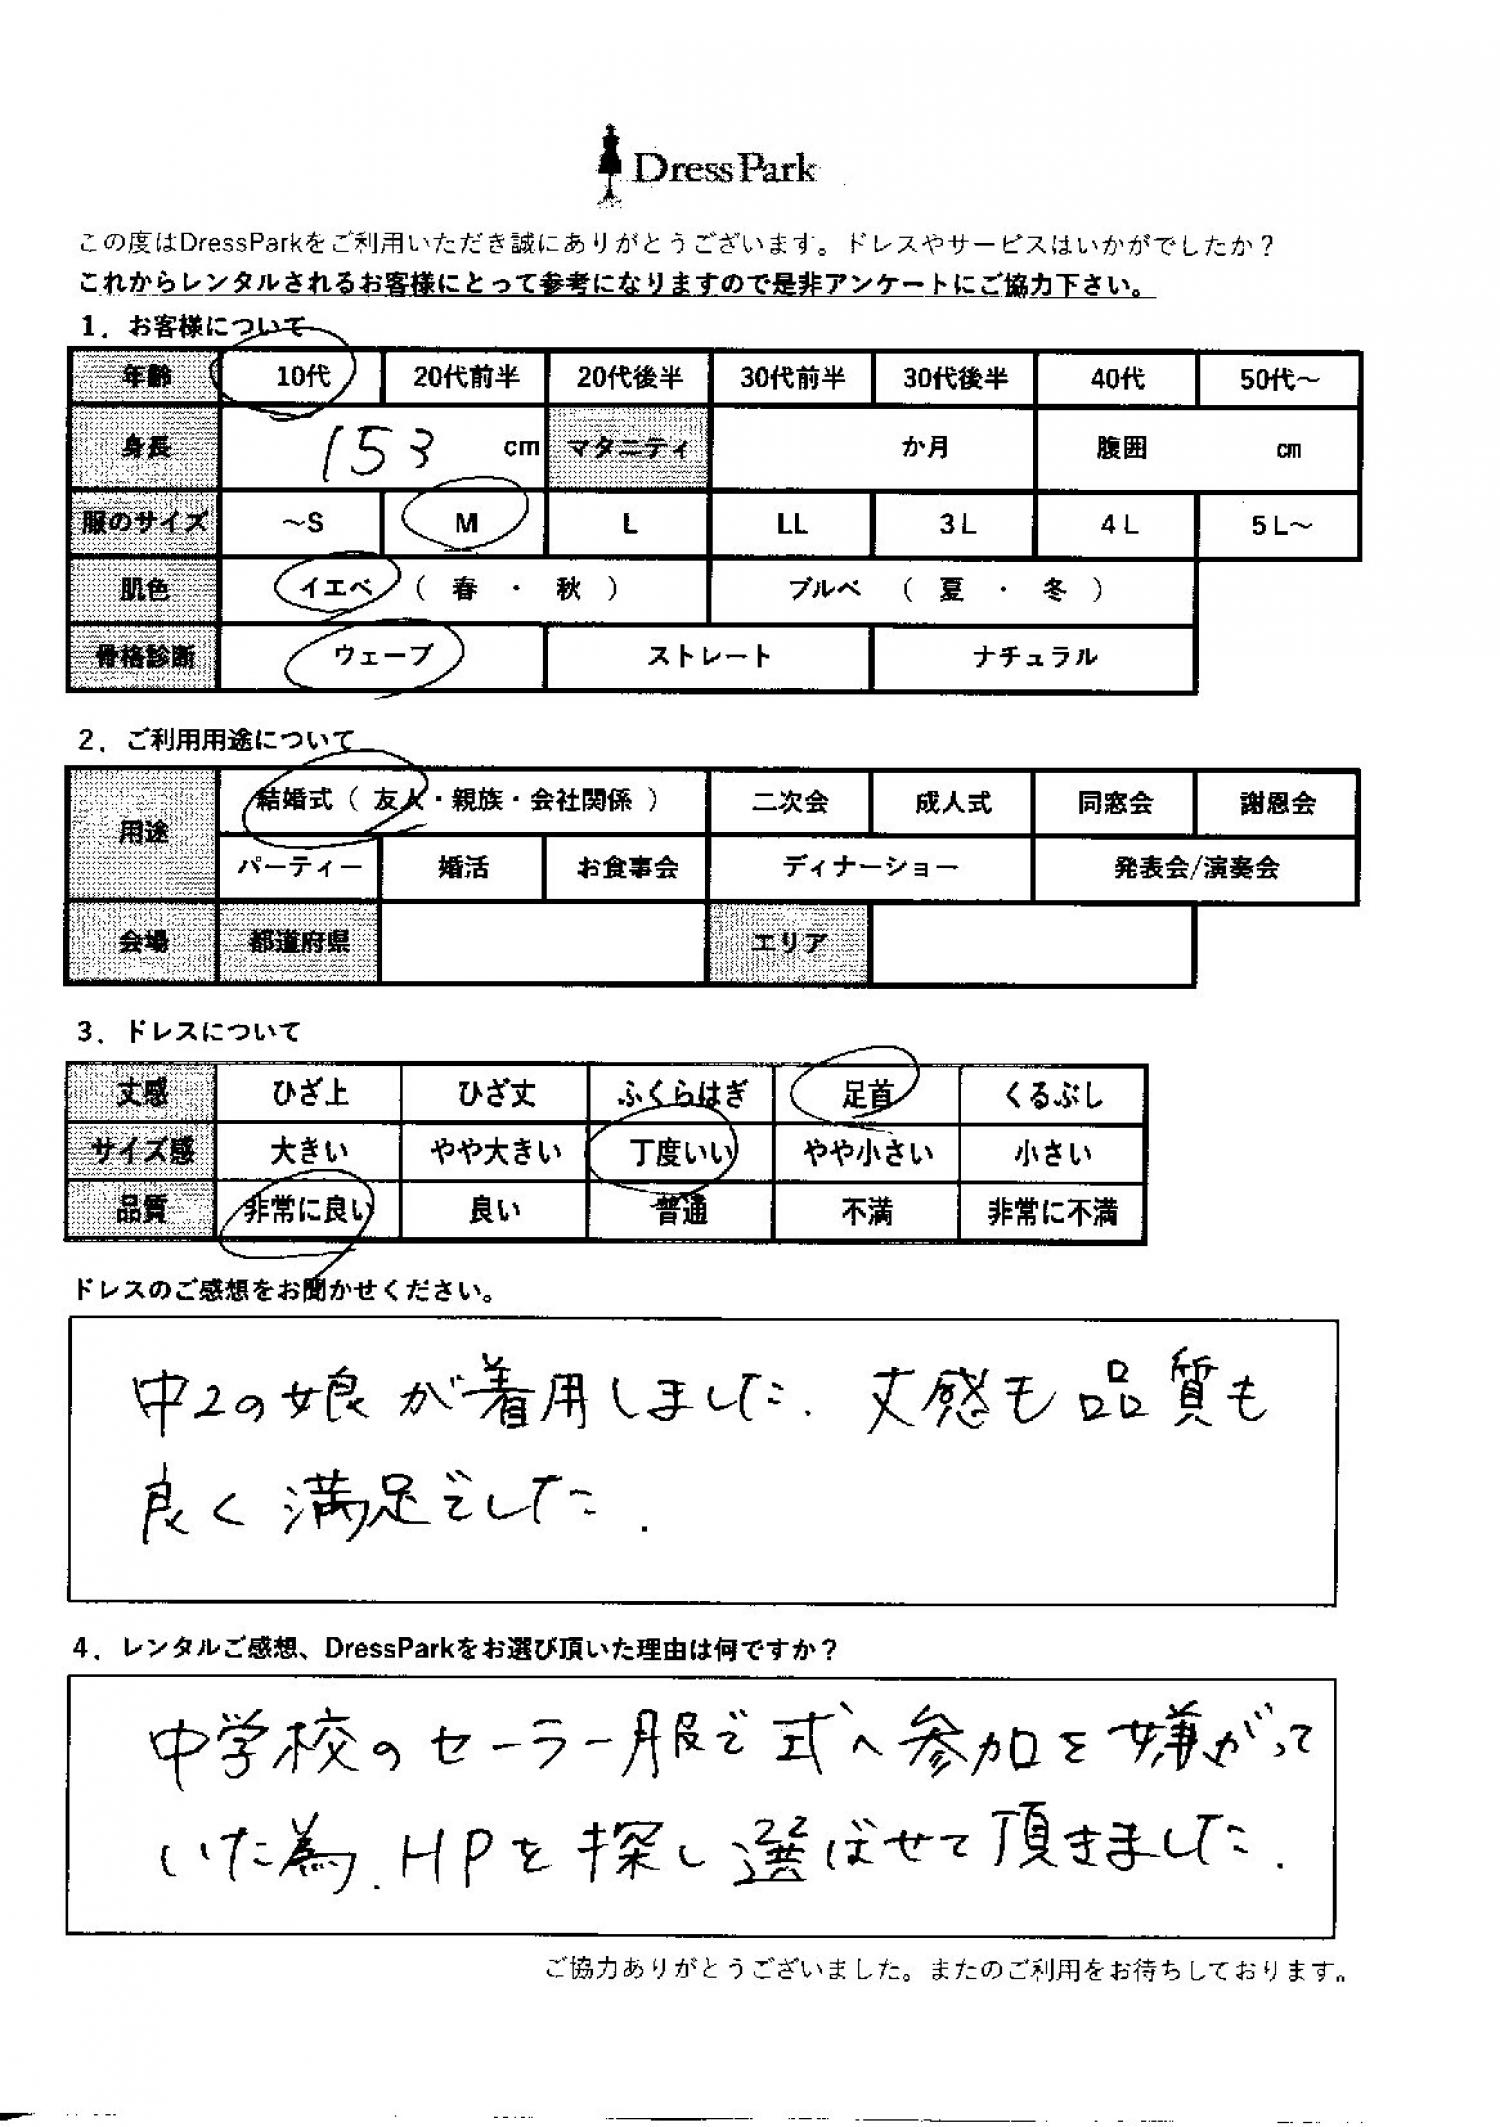 DressPark
この度はDressParkをご利用いただき誠にありがとうございます。ドレスやサービスはいかがでしたか？
これからレンタルされるお客様にとって参考になりますので是非アンケートにご協力下さい。
1．お客様について
年齢 10代 20代前半 20代後半 30代前半 30代後半 40代 50代～
身長 153 cm マタニティ か月 腹囲 cm
服のサイズ ～S M L LL 3L 4L 5L～
肌色 イエベ（ 春 ・ 秋 ） ブルベ （ 夏 ・ 冬 ）
骨格診断 ウェーブ ストレート ナチュラル
2．ご利用用途について
用途 結婚式（ 友人・親族・会社関係 ） 二次会 成人式 同窓会 謝恩会
パーティー 婚活 お食事会 ディナーショー 発表会/演奏会
会場 都道府県 エリア
3．ドレスについて
丈感 ひざ上 ひざ丈 ふくらはぎ 足首 くるぶし
サイズ感 大きい やや大きい 丁度いい やや小さい 小さい
品質 非常に良い 良い 普通 不満 非常に不満
ドレスのご感想をお聞かせください。
中2の娘が着用しました．丈感も品質も
良く満足でした．
4．レンタルご感想、DressParkをお選び頂いた理由は何ですか？
中学校のセーラー服で式へ参加を嫌がって
いた為．HPを探し選ばせて頂きました．
ご協力ありがとうございました。またのご利用をお待ちしております。